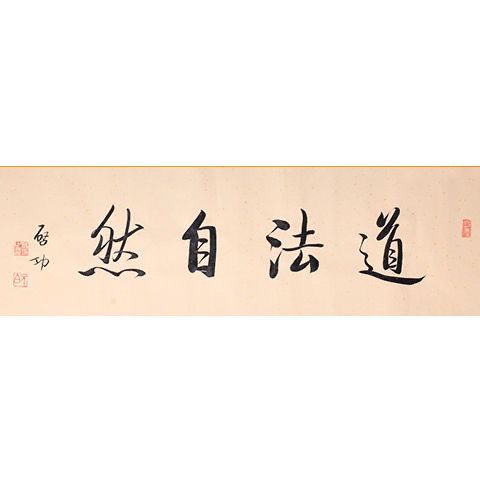 道法自然
啓功